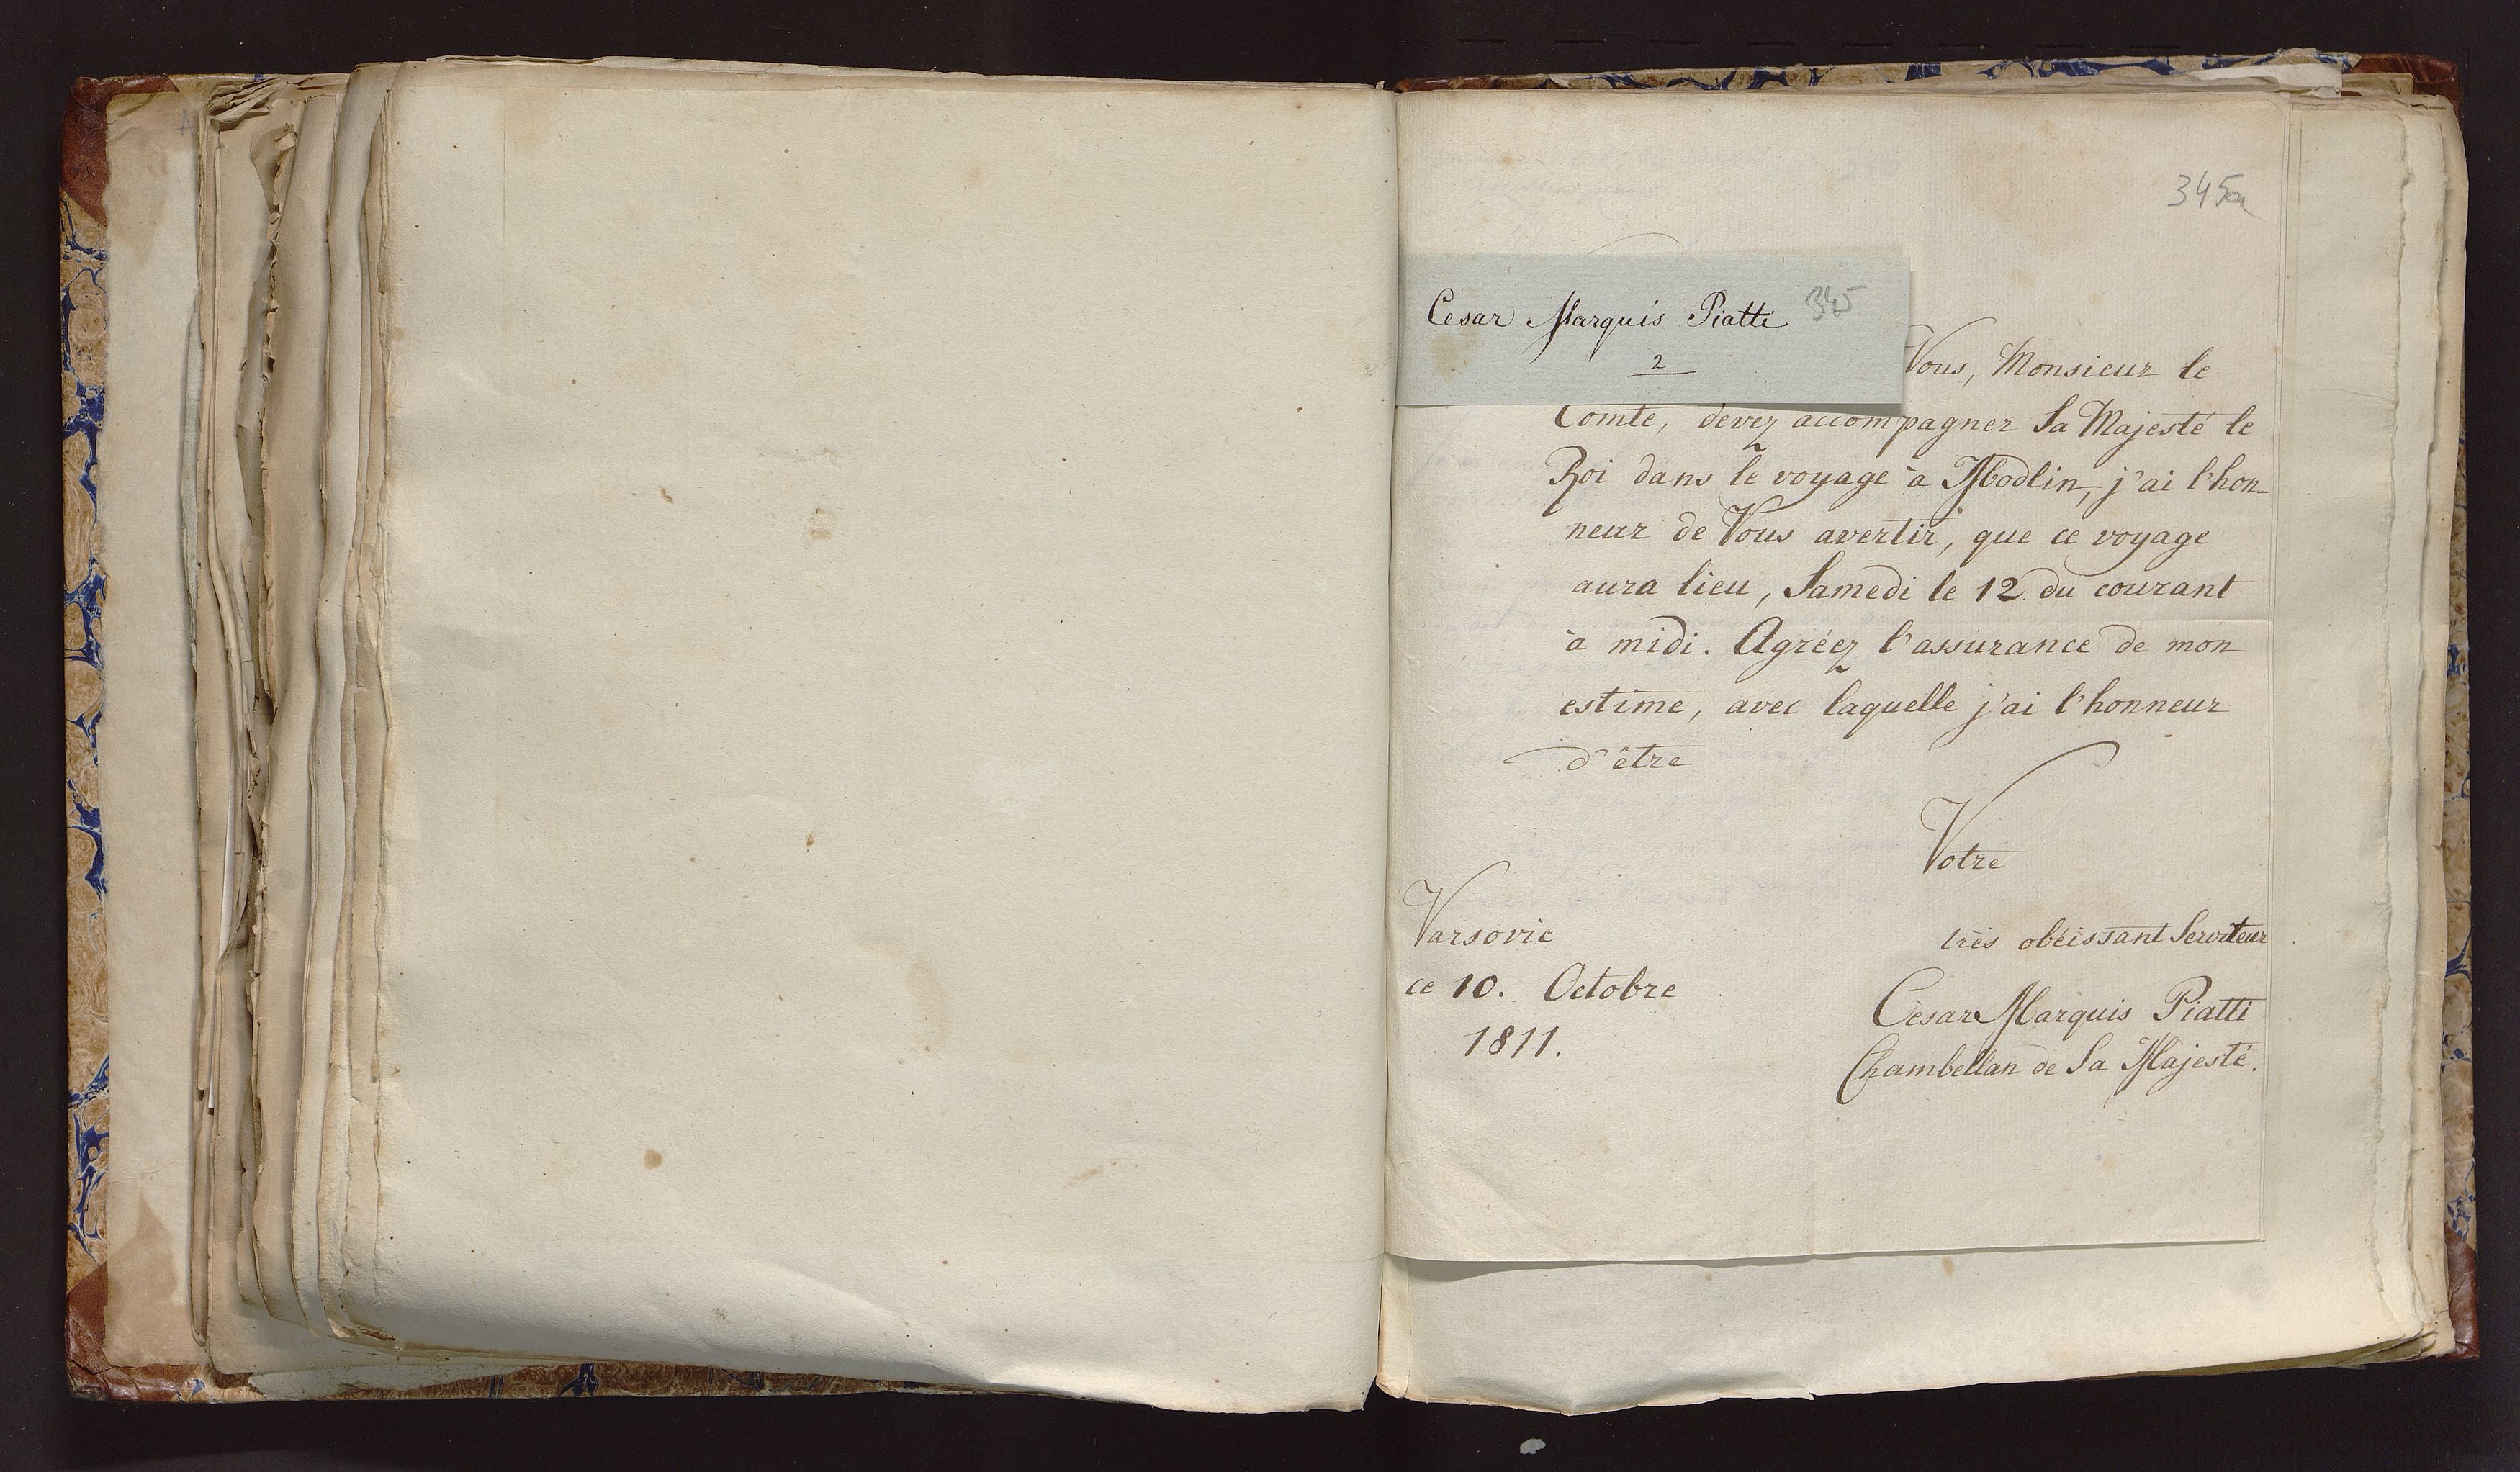 345a
Cesar Marquis Piatti 345
2
Vous, Monsieur le
Comte, devez accompagner Sa Majesté le
Roi dans le voyage à Modlin, j'ai l'hon-
neur de Vous avertir, que ce voyage
aura lieu, Samedi le 12 du courant
à midi. Agréez l'assurance de mon
estime, avec laquelle j'ai l'honneur
d'être
Votre
très obéissant Serviteur
Cèsar Marquis Piatti
Chambellan de Sa Majesté.
Varsovie
ce 10. Octobre
1811.